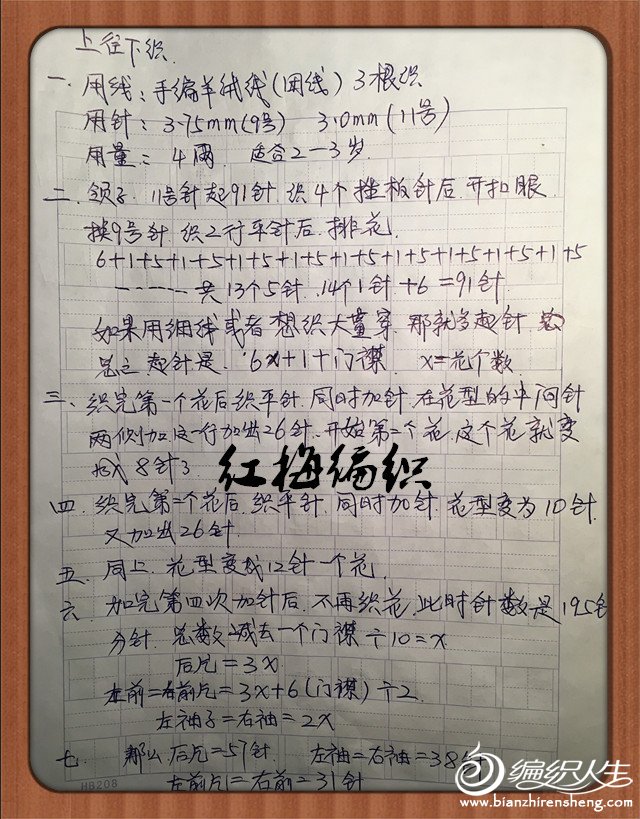 上往下织.
一. 用线：手编羊绒线(团线) 3根织
用针：3.75mm(9号) 3.0mm(11号)
用量：4两. 适合2—3岁.
二. 领子. 11号针起91针. 织4个搓板针后. 开扣眼.
换9号针. 织2行平针后. 排花.
6+1+5+1+5+1+5+1+5+1+5+1+5+1+5+1+5+1+5
------ 共13个5针. 14个1针+6=91针.
如果用细线或者想织大量穿. 那就多起针. 总
总之起针是. 6x+1+门襟. x=花个数.
三. 织完第一个花后. 织平针. 同时加针. 在花型的中间针
两侧加. 这一行加出26针. 开始第二个花. 这个花就变
成8针了
红梅编织
四. 织完第二个花后. 织平针. 同时加针. 花型变为10针.
又加出26针.
五. 同上. 花型变成12针一个花.
六. 加完第四次加针后. 不再织花. 此时针数是195针
分针. 总数减去一个门襟÷10=x
后片=3x
左前=右前片=3x+6(门襟)÷2.
左袖子=右袖=2x
七. 那么. 后片=57针. 左袖=右袖=38针
左前片=右前=31针
HB208
编织人生
www.bianzhirensheng.com